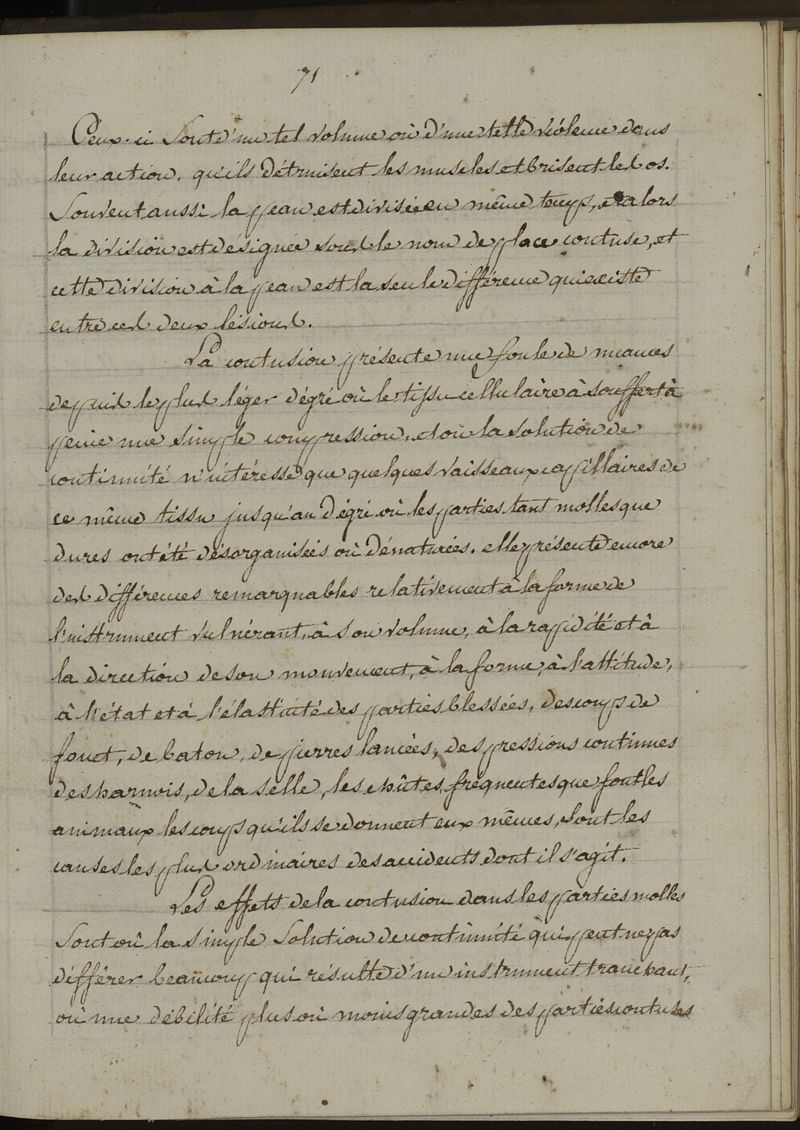 71
Ceux-ci sont d'un tel volume où d'une telle violence dans
leur action, qu'ils détruisent les muscles et brisent les os.
Souvent aussi la peau est divisée en même temps, et alors
la division est designée sous le nom de place contuse, et
cette division à la peau est la seule différence qui existe
entre ces deux lésions.
La contusion présente une foule de nuances
depuis le plus léger dégré où le tissu cellulaire à souffert à
peine une simple compression, et où la solution de
continuité n'intéresse que quelques vaisseaux capillaires de
ce même tissu jusqu'au dégré où les parties tant molles que
dures ont été désorganisées où dénaturées. elle présente encore
des différences remarquables relativement à la forme de
l'instrument vulnérant, à son volume, à la rapidité et à
la direction de son mouvement, à la forme, à l'attitude,
à l'état et à l'élasticité des parties blessées, des coups de
fouet, de baton, de pierres lancées, des pressions continues
des harnois, de la selle, les chûtes fréquentes que font les
animaux les coups qu'ils se donnent eux mêmes, sont les
causes les plus ordinaires des accidents dont il s'agit.
Les effets de la contusion dans les parties molles
sont où la simple solution de continuité qui peut ne pas
différer beaucoup qui résulte d'un instrument tranchant,
où une débilité plus où moins grandes des parties contuses